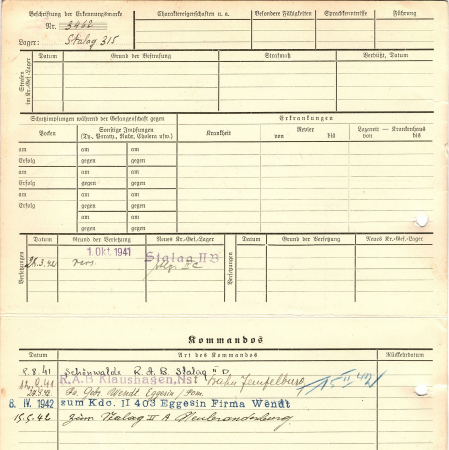 Beschriftung der Erkennungsmarke
Nr. 3962
Lager: Stalag 315
Charaktereigenschaften u. a.
Besondere Fähigkeiten
Sprachkenntnisse
Führung
Strafen im Kr.-Gef.-Lager
Datum
Grund der Bestrafung
Strafmaß
Verbüßt, Datum
Schutzimpfungen während der Gefangenschaft gegen
Erkrankungen
Pocken
Sonstige Impfungen
(Ty., Paraty., Ruhr, Cholera usw.)
Krankheit
Revier
von bis
Lazarett — Krankenhaus
von bis
am am am
Erfolg gegen gegen
am am am
Erfolg gegen gegen
am am am
Erfolg gegen gegen
am am
gegen gegen
Versetzungen
Datum
Grund der Versetzung
Neues Kr.-Gef.-Lager
Versetzungen
Datum
Grund der Versetzung
Neues Kr.-Gef.-Lager
1. Okt. 1941
Stalag II B
.3.42 vers. II C
Kommandos
Datum
Art des Kommandos
Rückkehrdatum
8.41 Schönwalde R.A.B. Stalag II D,
R.A.B Klaushagen, Nst
Wendt Eggesin / Pom.
8. IV. 1942 zum Kdo. II 403 Eggesin Firma Wendt
15.5.42 zum Stalag II A Neubrandenburg